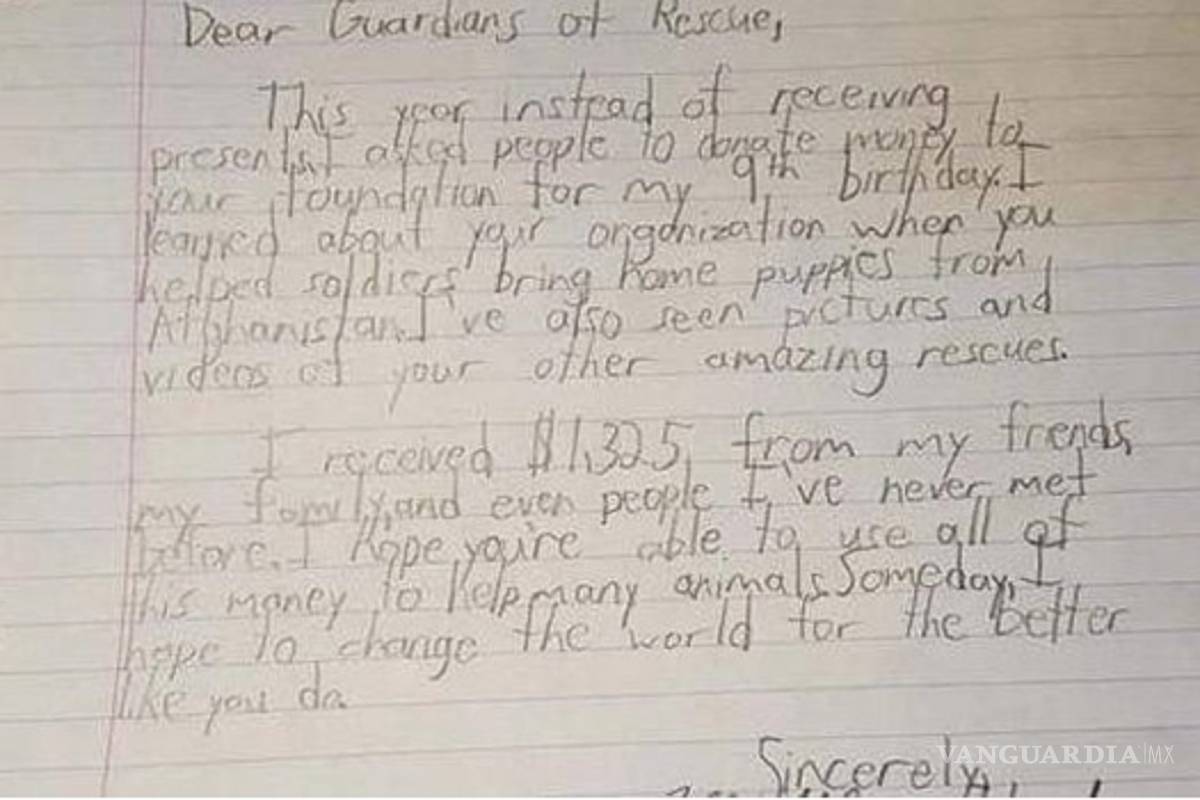 Dear Guardians of Rescue,
This year instead of receiving
presents, I asked people to donate money to
your foundation for my 9th birthday. I
learned about your organization when you
helped soldiers bring home puppies from
Afghanistan. I've also seen pictures and
videos of your other amazing rescues.
I received $1,325 from my frends,
my family, and even people I've never met
before. I hope you're able to use all of
this money to help many animals. Someday, I
hope to change the world for the better
like you do.
Sincerely,
VANGUARDIA|MX